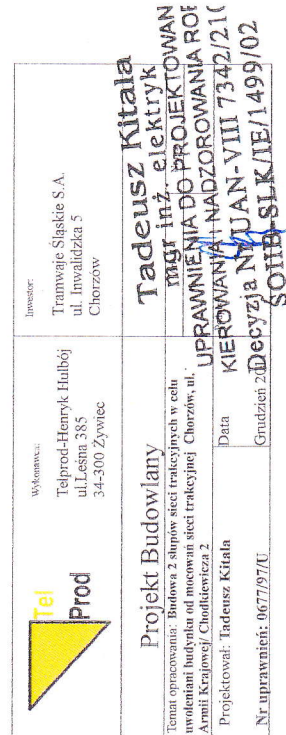 Tel
Prod
Wykonawca:
Telprod-Henryk Hulbój
ul.Leśna 385
34-300 Żywiec
Inwestor:
Tramwaje Śląskie S.A.
ul. Inwalidzka 5
Chorzów
Projekt Budowlany
Temat opracowania: Budowa 2 słupów sieci trakcyjnych w celu
uwolnieni budynku od mocowań sieci trakcyjnej Chorzów, ul.
Armii Krajowej/ Chodkiewicza 2
Projektował: Tadeusz Kitala
Data
Nr uprawnień: 0677/97/U
Grudzień
Tadeusz Kitala
mgr inż. elektryk
UPRAWNIENIA DO PROJEKTOWAN
KIEROWANIA I NADZOROWANIA ROB
Decyzja Nr UAN-VIII 7342/21
SOIIB-SLK/IE/1499/02